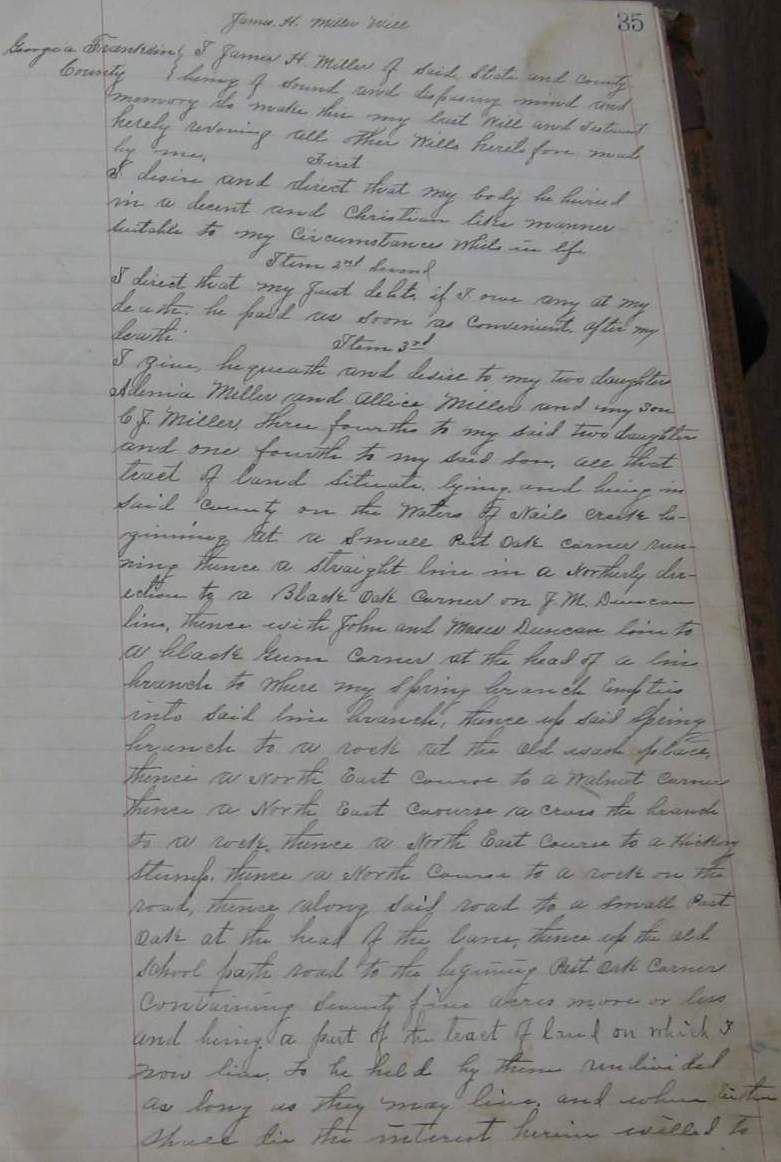 James. H. Miller Will
35
Georgia Franklin I James H. Miller of said State and County
County being of sound and disposing mind and
memory do make this my last Will and Testament
hereby revoking all other Wills heretofore made
by me. First
I desire and direct that my body be buried
in a decent and Christian like manner
suitable to my Circumstances while in life
Item 2nd Second
I direct that my Just debts, if I owe any at my
death. be paid as soon as convenient, after my
death. Item 3rd
I give, bequeath and desire to my two daughters
Adenia Miller and Allice Miller and my Son
C. J. Miller, three fourths to my said two daughters
and one fourth to my said son, all that
tract of land situate. lying. and being in
said County on the Waters of Nails creek be-
ginning at a small Post Oak corner run-
ning thence a straight line in a Northerly dir-
ection to a Black Oak Corner on J. M. Duncan
line, thence with John and Moses Duncan line to
a black Gum Corner at the head of a line
branch to where my spring branch Empties
into said line branch, thence up said Spring
branch to a rock at the old wash place,
thence a North East Course to a Walnut Corner
thence a North East Coourse a cross the branch
to a rock. thence a North East Course to a Hickory
Stump. thence a North Course to a rock on the
road, thence along said road to a small Post
Oak at the head of the lane, thence up the old
school path road to the begining Post Oak Corner
Containing Seventy five acres more or less
and being a part of the tract of land on which I
now live, to be held by them undivided
as long as they may live. and when Either
shall die the interest herein willed to